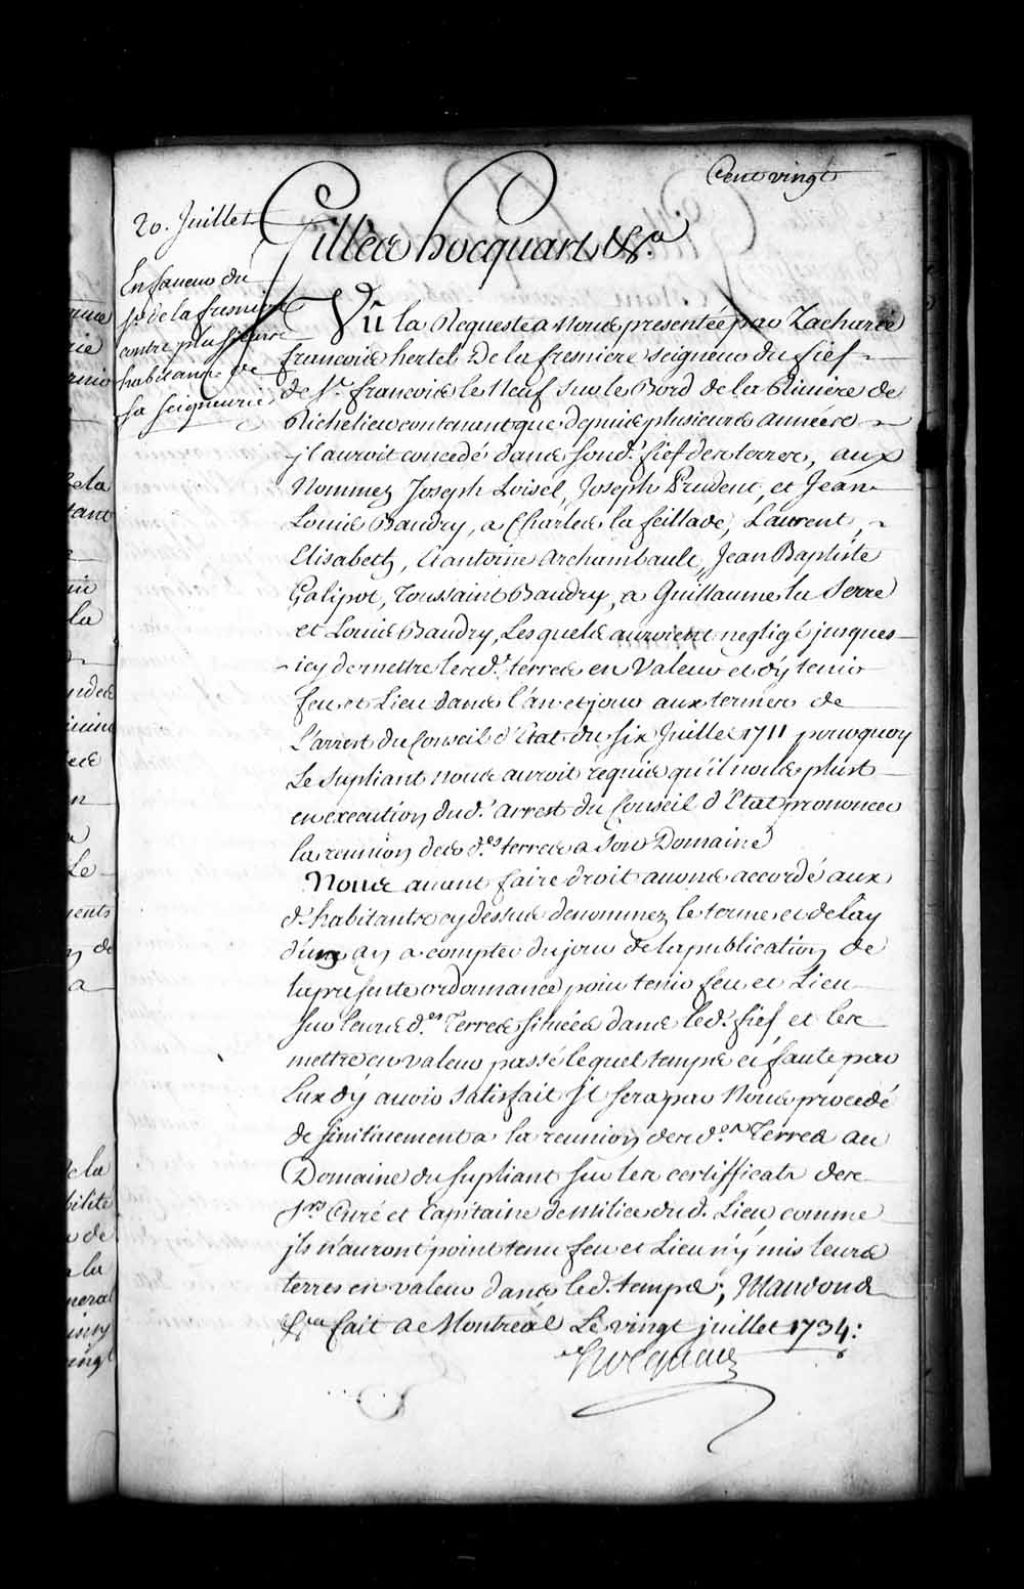 Cent vingt
20. Juillet
Gilles hocquart &c.a
En faveur du
Sr. de la fresniere
contre plusieurs
habitans de
sa seigneurie
Vû la Requeste a Nous presentée par Zacharie
francois hertel Sr. de la fresniere seigneur du fief
de St. francois le Neuf sur le Bord de la Riviere de
Richelieu contenant que depuis plusieurs années
jl auroit concedé dans sond. fief des terres, aux
Nommez Joseph Loisel, Joseph Prudent, et Jean
Louis Baudry, a Charles la feillade, Laurent,
Elisabeth, & antoine archambault, Jean Baptiste
Galipot, Toussaint Baudry, a Guillaume la Serre
et Louis Baudry, Lesquels auroient negligé jusques
icy de mettre lesd. terres en Valeur et d'y tenir
feu et Lieu dans l'an et jour aux termes de
L'arrest du Conseil d'Etat du six Juillet 1711 pourquoy
Le Supliant nous auroit requis qu'il nous plust
en execution dud. arrest du Conseil d'Etat prononcer
la reunion des d.es terres a son Domaine
Nous avant faire droit avons accordé aux
d. habitants cy dessus denommez le terme et delay
d'un an a compter du jour de la publication de
la presente ordonnance pour tenir feu et Lieu
sur leurs d.es Terres situées dans led. fief et les
mettre en valeur passé lequel temps et faute par
Eux d'y avoir satisfait jl sera par Nous procedé
definitivement a la reunion des d.es Terres au
Domaine du Supliant sur les certifficats des
Srs Curé et Capitaine de Milice dud. Lieu comme
jls n'auront point tenu feu et Lieu n'y mis leurs
terres en valeur dans led. temps; Mandons
&ca fait a Montreal Le vingt juillet 1734:
Hocquart